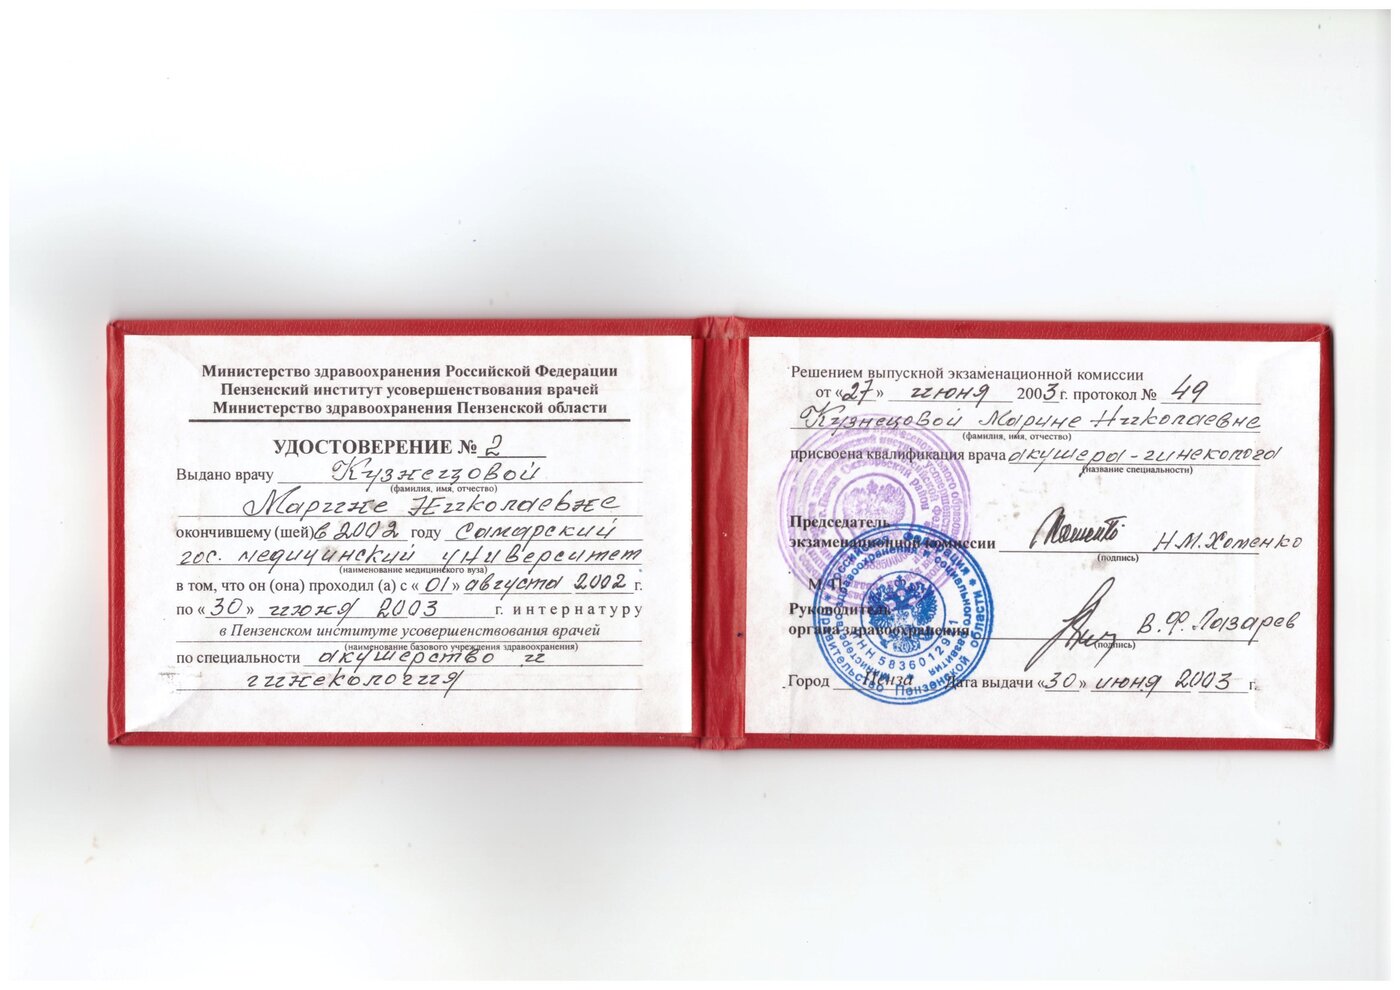 Министерство здравоохранения Российской Федерации
Пензенский институт усовершенствования врачей
Министерство здравоохранения Пензенской области
УДОСТОВЕРЕНИЕ № 2
Выдано врачу Кузнецовой
(фамилия, имя, отчество)
Марине Николаевне
окончившему (шей) в 2002 году Самарский
гос. медицинский университет
(наименование медицинского вуза)
в том, что он (она) проходил (а) с «01» августа 2002 г.
по «30» июня 2003 г. интернатуру
в Пензенском институте усовершенствования врачей
(наименование базового учреждения здравоохранения)
по специальности акушерство и
гинекология
Решением выпускной экзаменационной комиссии
от «27» июня 2003 г. протокол № 49
Кузнецовой Марине Николаевне
(фамилия, имя, отчество)
присвоена квалификация врача акушера-гинеколога
(название специальности)
Председатель
экзаменационной комиссии Н.М.Хоменко
(подпись)
М.П.
Руководитель
органа здравоохранения В.Ф.Лазарев
(подпись)
Город Пенза Дата выдачи «30» июня 2003 г.
ИНН 5836012921
Правительство Пензенской области